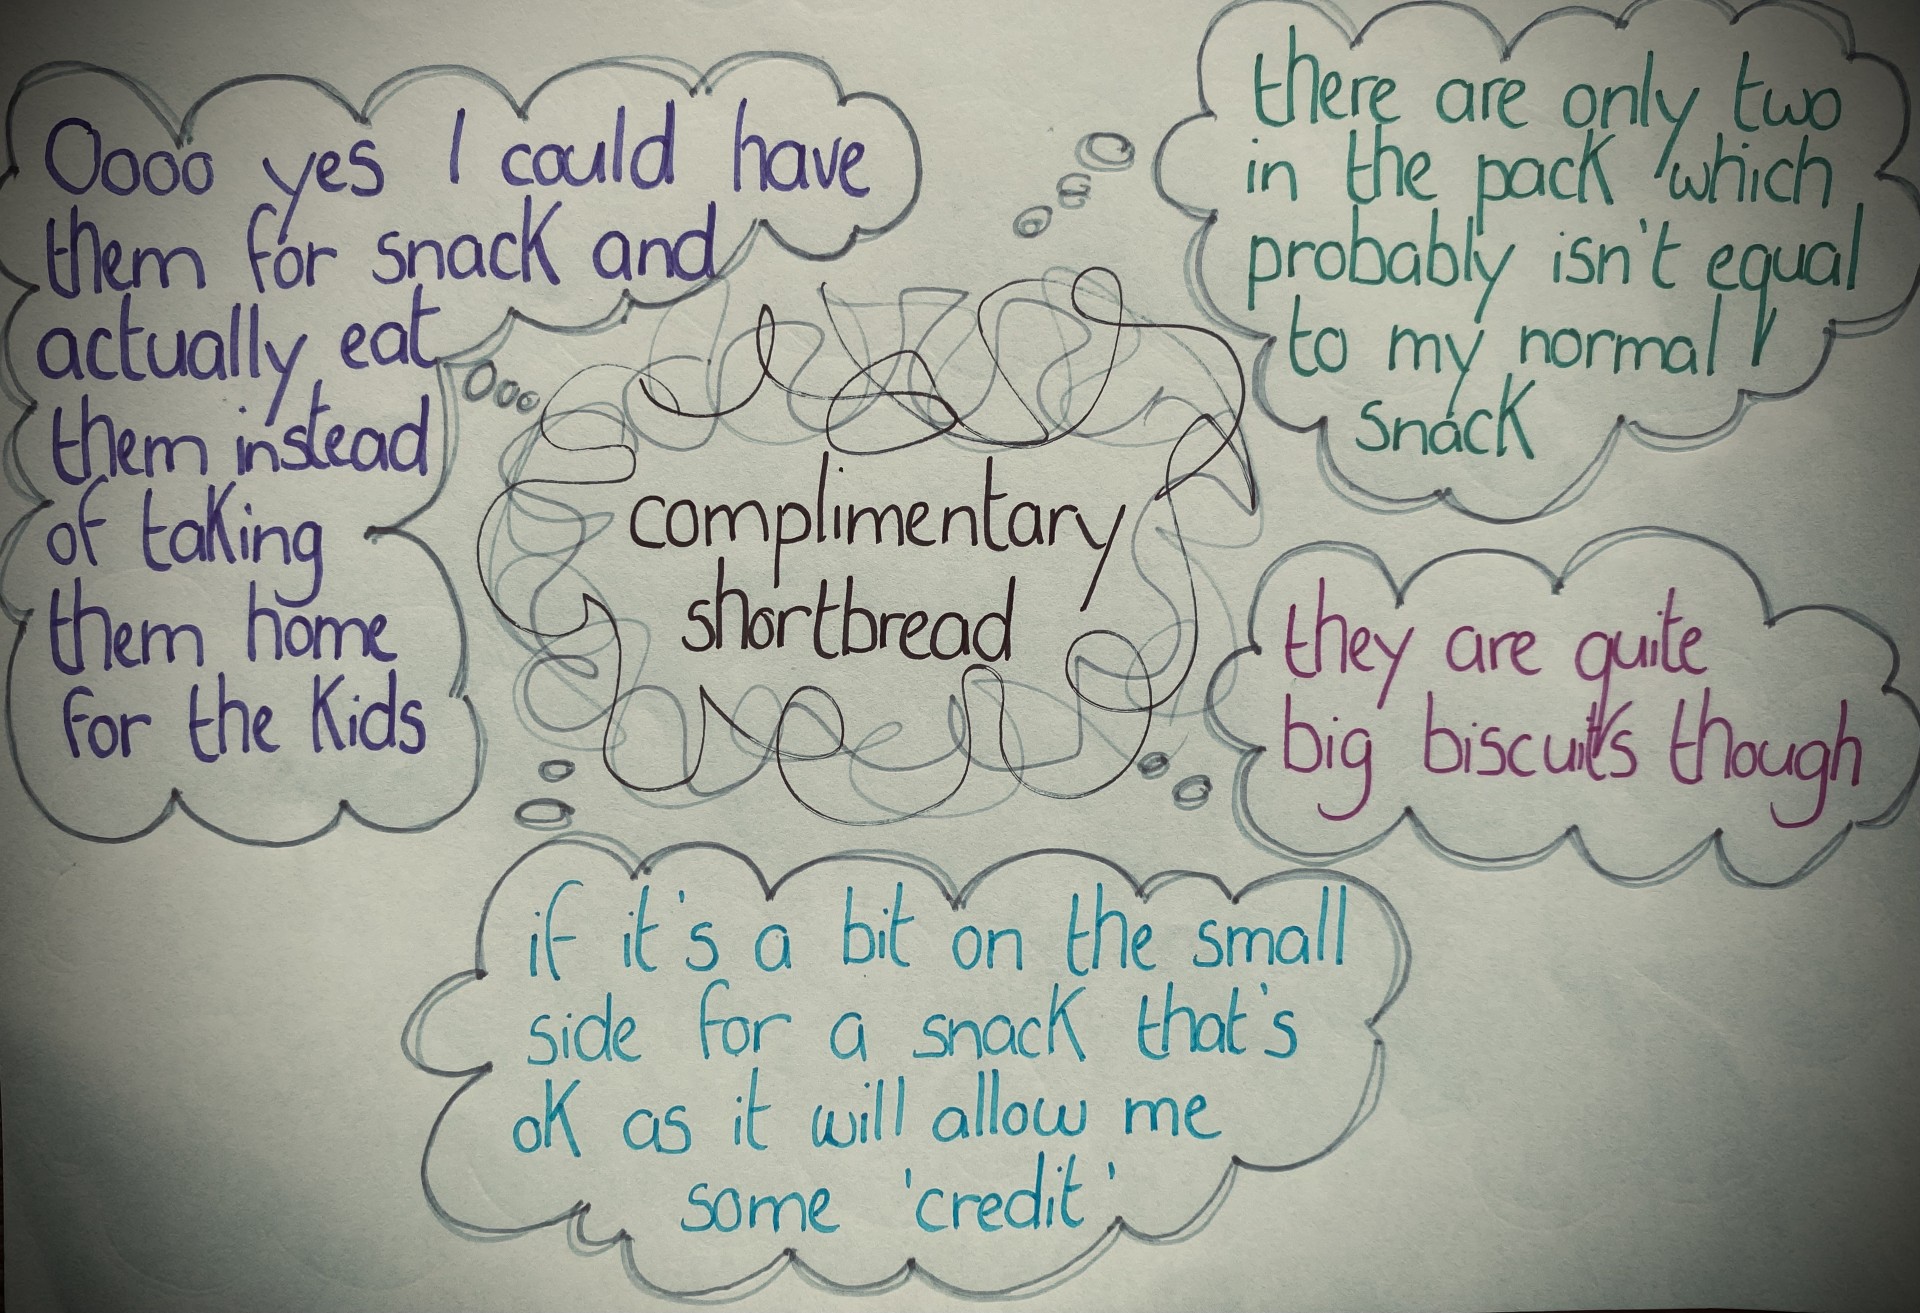 Oooo yes I could have
them for snack and
actually eat
them instead
of taking
them home
for the kids
there are only two
in the pack which
probably isn't equal
to my normal
snack
complimentary
shortbread
they are quite
big biscuits though
if it's a bit on the small
side for a snack that's
ok as it will allow me
some 'credit'